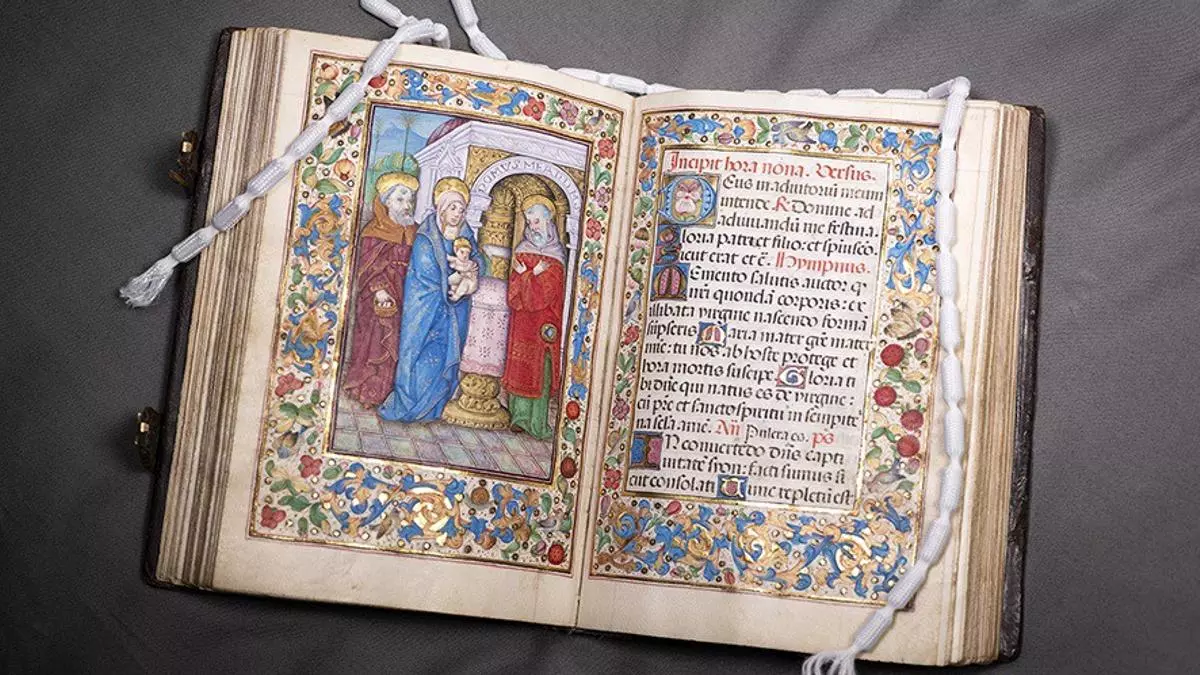 DOMVS MEA T D
Incipit hora nona. Versus.
Deus in adiutoriū meum
intende R Domine ad
adiuuandū me festina.
Gloria patri et filio: et spiui sco.
Sicut erat et c̄. Hympnus.
Memento salutis auctor q
nr̄i quondā corporis: ex
illibata virgine nascendo formā
sūpseris Maria mater grē mater
mie: tu nos ab hoste protege et
hora mortis suscipe Gloria ti
bi dn̄e qui natus es de virgine:
cū pr̄e et sancto spiritu in sempite
na scla amē. An̄ Pulcra es. ps
IN conuertedo dn̄s capti
uitatē syon: facti sumus si
cut consolati Tunc repletū est